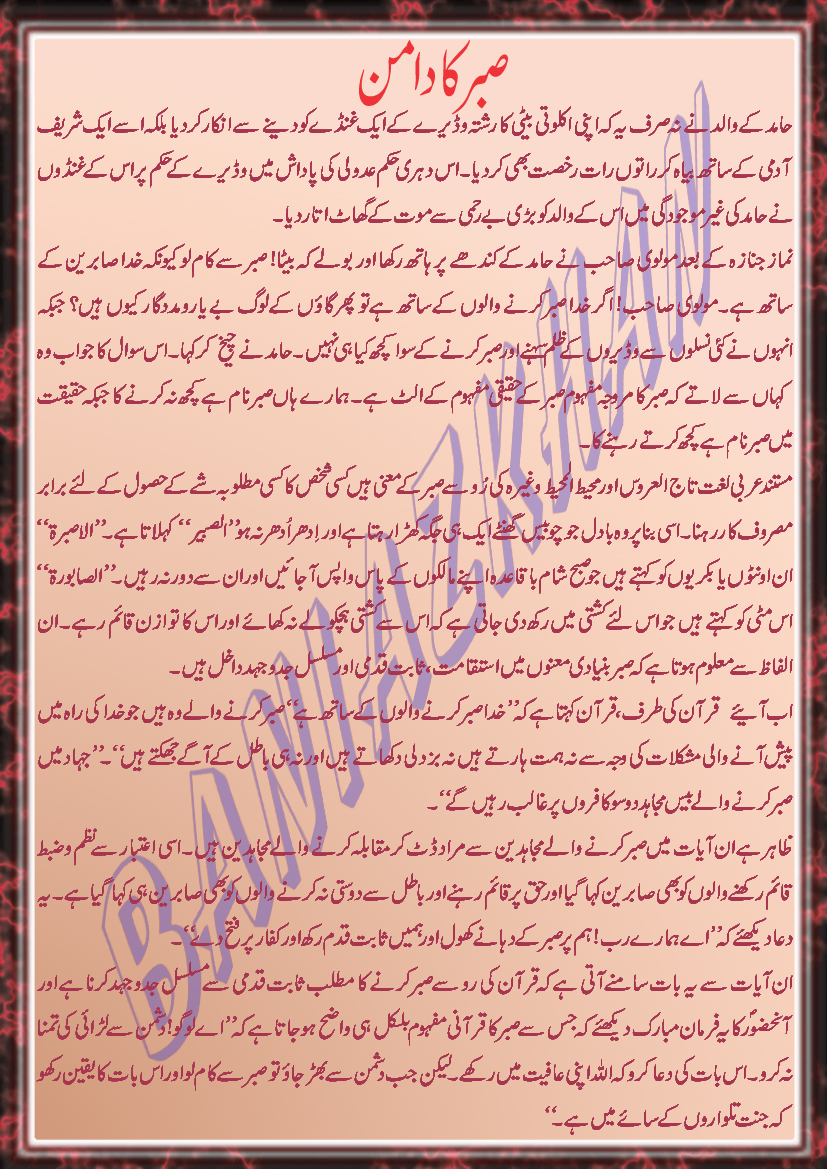 صبر کا دامن
حامد کے والد نے نہ صرف یہ کہ اپنی اکلوتی بیٹی کا رشتہ وڈیرے کے ایک غنڈے کو دینے سے انکار کر دیا بلکہ اسے ایک شریف
آدمی کے ساتھ بیاہ کر راتوں رات رخصت بھی کر دیا۔ اس دہری حکم عدولی کی پاداش میں وڈیرے کے حکم پر اس کے غنڈوں
نے حامد کی غیر موجودگی میں اس کے والد کو بڑی بے رحمی سے موت کے گھاٹ اتار دیا۔
نماز جنازہ کے بعد مولوی صاحب نے حامد کے کندھے پر ہاتھ رکھا اور بولے کہ بیٹا! صبر سے کام لو کیونکہ خدا صابرین کے
ساتھ ہے۔ مولوی صاحب! اگر خدا صبر کرنے والوں کے ساتھ ہے تو پھر گاؤں کے لوگ بے یارومددگار کیوں ہیں؟ جبکہ
انہوں نے کئی نسلوں سے وڈیروں کے ظلم سہنے اور صبر کرنے کے سوا کچھ کیا ہی نہیں۔ حامد نے چیخ کر کہا۔ اس سوال کا جواب وہ
کہاں سے لاتے کہ صبر کا مروجہ مفہوم صبر کے حقیقی مفہوم کے الٹ ہے۔ ہمارے ہاں صبر نام ہے کچھ نہ کرنے کا جبکہ حقیقت
میں صبر نام ہے کچھ کرتے رہنے کا۔
مستند عربی لغت تاج العروس اور محیط المحیط وغیرہ کی رُو سے صبر کے معنی ہیں کسی شخص کا کسی مطلوبہ شے کے حصول کے لئے برابر
مصروف کار رہنا۔ اسی بنا پر وہ بادل جو چوبیس گھنٹے ایک ہی جگہ کھڑا رہتا ہے اور اِدھر اُدھر نہ ہو ”الصبیر“ کہلاتا ہے۔ ”الاصبرة“
ان اونٹوں یا بکریوں کو کہتے ہیں جو صبح شام باقاعدہ اپنے مالکوں کے پاس واپس آجائیں اور ان سے دور نہ رہیں۔ ”الصابورة“
اس مٹی کو کہتے ہیں جو اس لئے کشتی میں رکھ دی جاتی ہے کہ اس سے کشتی ہچکولے نہ کھائے اور اس کا توازن قائم رہے۔ ان
الفاظ سے معلوم ہوتا ہے کہ صبر بنیادی معنوں میں استقامت، ثابت قدمی اور مسلسل جدوجہد داخل ہیں۔
اب آیئے قرآن کی طرف، قرآن کہتا ہے کہ ”خدا صبر کرنے والوں کے ساتھ ہے“ صبر کرنے والے وہ ہیں جو خدا کی راہ میں
پیش آنے والی مشکلات کی وجہ سے نہ ہمت ہارتے ہیں نہ بزدلی دکھاتے ہیں اور نہ ہی باطل کے آگے جھکتے ہیں“۔ ”جہاد میں
صبر کرنے والے بیس مجاہد دو سو کافروں پر غالب رہیں گے“۔
ظاہر ہے ان آیات میں صبر کرنے والے مجاہدین سے مراد ڈٹ کر مقابلہ کرنے والے مجاہدین ہیں۔ اسی اعتبار سے نظم وضبط
قائم رکھنے والوں کو بھی صابرین کہا گیا اور حق پر قائم رہنے اور باطل سے دوستی نہ کرنے والوں کو بھی صابرین ہی کہا گیا ہے۔ یہ
دعا دیکھئے کہ ”اے ہمارے رب! ہم پر صبر کے دہانے کھول اور ہمیں ثابت قدم رکھ اور کفار پر فتح دے“۔
ان آیات سے یہ بات سامنے آتی ہے کہ قرآن کی رو سے صبر کرنے کا مطلب ثابت قدمی سے مسلسل جدوجہد کرنا ہے اور
آنحضورؐ کا یہ فرمان مبارک دیکھئے کہ جس سے صبر کا قرآنی مفہوم بلکل ہی واضح ہو جاتا ہے کہ ”اے لوگو! دشمن سے لڑائی کی تمنا
نہ کرو۔ اس بات کی دعا کرو کہ اللہ اپنی عافیت میں رکھے۔ لیکن جب دشمن سے بھڑ جاؤ تو صبر سے کام لو اور اس بات کا یقین رکھو
کہ جنت تلواروں کے سائے میں ہے۔“
BANIAZKHAN